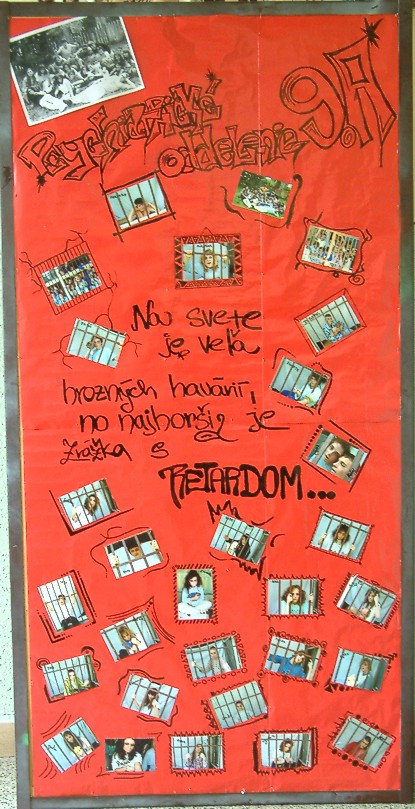 Psychiatrické
oddelenie 9.A
Na svete
je veľa
hrozných havárií,
no najhoršia je
zrážka s
RETARDOM...